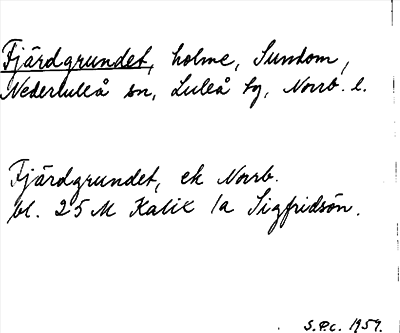 Fjärdgrundet, holme, Sundom,
Nederluleå sn, Luleå tg, Norrb. l.
Fjärdgrundet, ek Norrb.
bl. 25 M Kalix 1a Sigfridsön.
S.P.C. 1959.